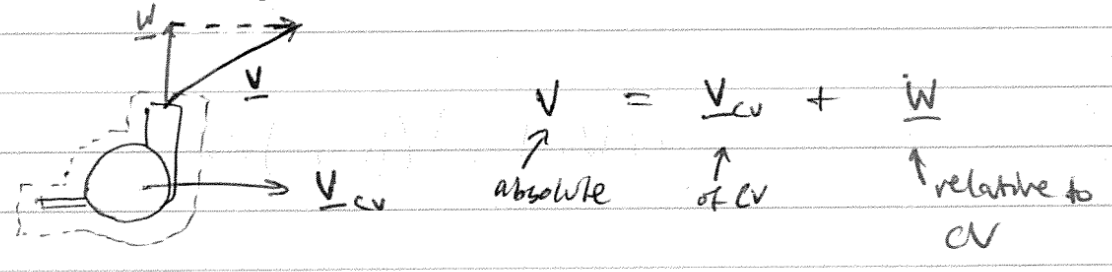 W
V
V = V_cv + W
absolute of CV relative to
CV
V_cv